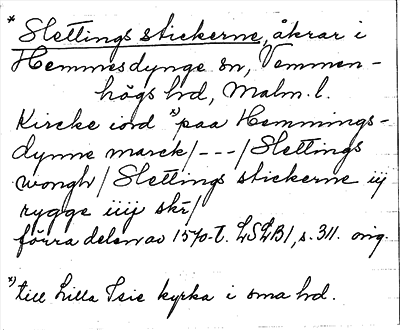 * Slettings stickerne, åkrar i
Hemmesdynge sn, Vemmen-
högs hd, Malm. l.
Kircke iord *) paa Hemmings-
dynne marck/---/Slettings
wongh/Slettings stickerne iij
rygge iiij skr/
förra delen av 1570-t. LSLB1, s. 311. orig.
*) till Lilla Isie kyrka i sma hd.